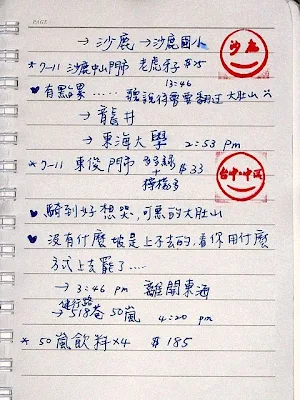 PAGE
→ 沙鹿 → 沙鹿國小
沙鹿
* 7-11 沙鹿中山門市 老虎牙子 $25
13:46
♥ 有點累..... 聽說待會要翻过大肚山
→ 龍井
→ 東海大學 2:53 pm
* 7-11 東俊門市 多多綠 + 檸檬多 $33
台中·中区
♥ 騎到好想哭,可惡的大肚山
♥ 沒有什麼坡是上不去的,看你用什麼
方式上去罷了....
→ 3:46 pm 離開東海
健行路
→ 518巷 50嵐 4:20 pm
* 50嵐飲料×4 $185